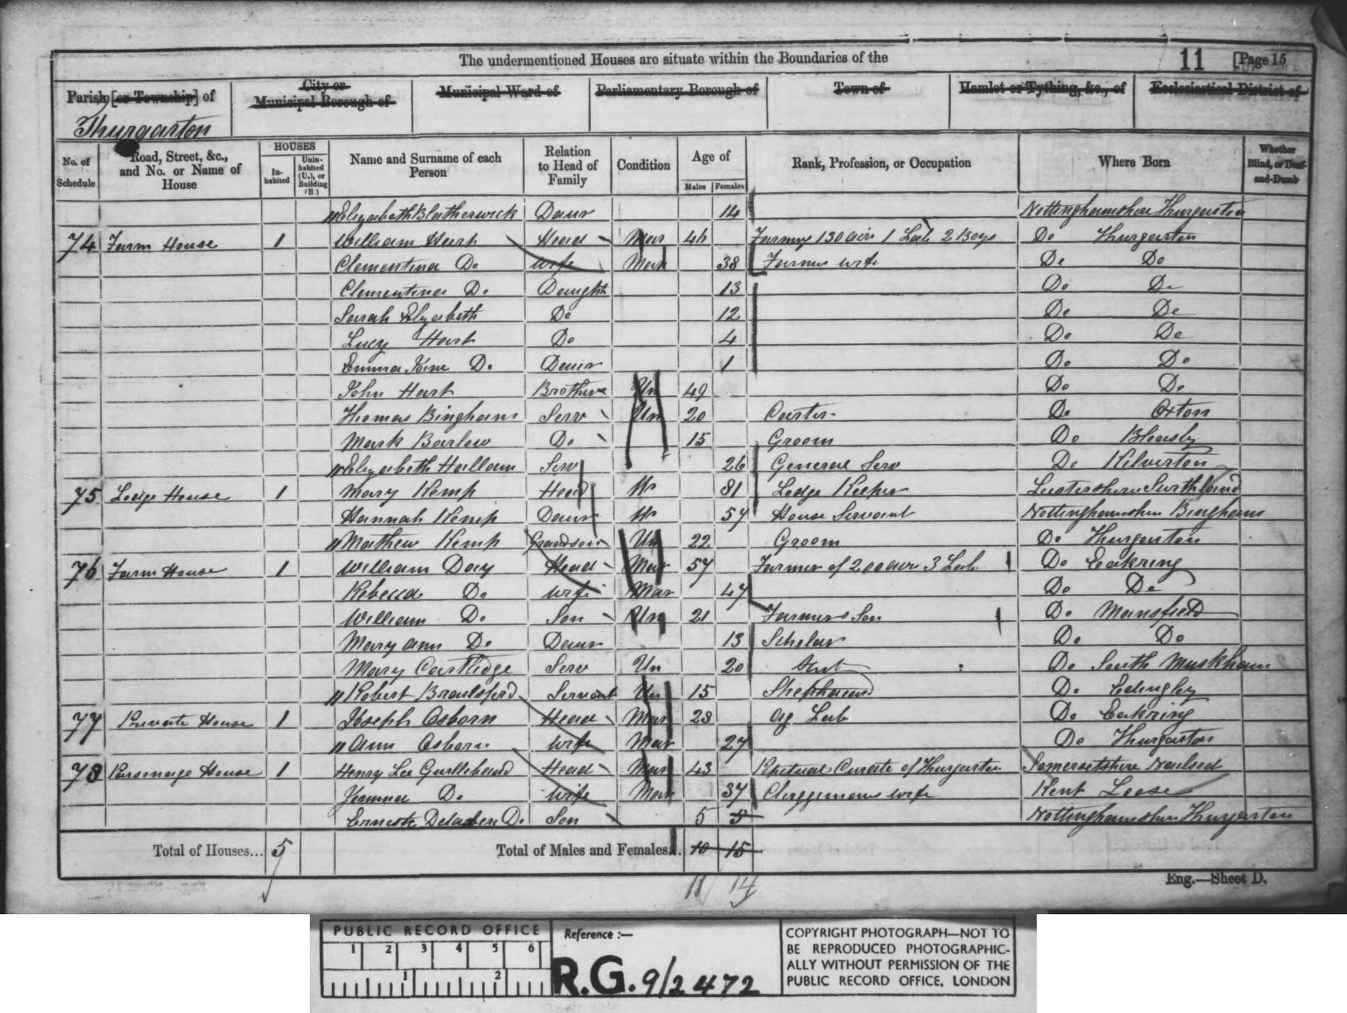 The undermentioned Houses are situate within the Boundaries of the 11 [Page 15
Parish [or Township] of City or Municipal Borough of Municipal Ward of Parliamentary Borough of Town of Hamlet or Tything, &c., of Ecclesiastical District of
Thurgarton
No. of Schedule Road, Street, &c., and No. or Name of House HOUSES Inhabited Uninhabited (U.), or Building (B.) Name and Surname of each Person Relation to Head of Family Condition Age of Males Females Rank, Profession, or Occupation Where Born Whether Blind, or Deaf-and-Dumb
Elizabeth Blatherwick Daur 14 Nottinghamshire Thurgarton
74 Farm House 1 William Hart Head Mar 46 Farming 130 acrs 1 Lab 2 Boys Do Thurgarton
Clementina Do Wife Mar 38 Farmers wife Do Do
Clementina Do Daughtr 13 Do Do
Sarah Elizabeth Do 12 Do Do
Lucy Hart Do 4 Do Do
Emma Jane Do Daur 1 Do Do
John Hart Brother Un 49 Do Do
Thomas Bingham Serv Un 20 Carter Do Oxton
Mark Barlow Do 15 Groom Do Bleasby
Elizabeth Hallam Serv 26 General Serv Do Kilverton
75 Lodge House 1 Mary Kemp Head W 81 Lodge Keeper Leicestershire
Hannah Kemp Daur W 57 House Servant Nottinghamshire Bingham
Mathew Kemp Grandson Un 22 Groom Do Thurgarton
76 Farm House 1 William Doey Head Mar 57 Farmer of 200 acr 3 Lab Do Eakring
Rebecca Do Wife Mar 47 Do Do
William Do Son Un 21 Farmers Son Do Mansfield
Mary Ann Do Daur 13 Scholar Do Do
Mary Cartlidge Serv Un 20 Do South Muskham
Robert Brailsford Servant Un 15 Shepherd Do Edingley
77 Private House 1 Joseph Osborn Head Mar 23 Ag Lab Do Eakring
Ann Osborn Wife Mar 27 Do Thurgarton
78 Parsonage House 1 Henry Lee Head Mar 43 Perpetual Curate of Thurgarton Somersetshire Nailsea
Do Wife Mar 37 Clergymans wife Kent Loose
Ernest Do Son 5 Nottinghamshire Thurgarton
Total of Houses... 5 Total of Males and Females... 10 15
11 14
Eng.—Sheet D.
PUBLIC RECORD OFFICE
1 2 3 4 5 6
1 2
Reference :—
R.G. 9/2472
COPYRIGHT PHOTOGRAPH—NOT TO
BE REPRODUCED PHOTOGRAPHIC-
ALLY WITHOUT PERMISSION OF THE
PUBLIC RECORD OFFICE, LONDON